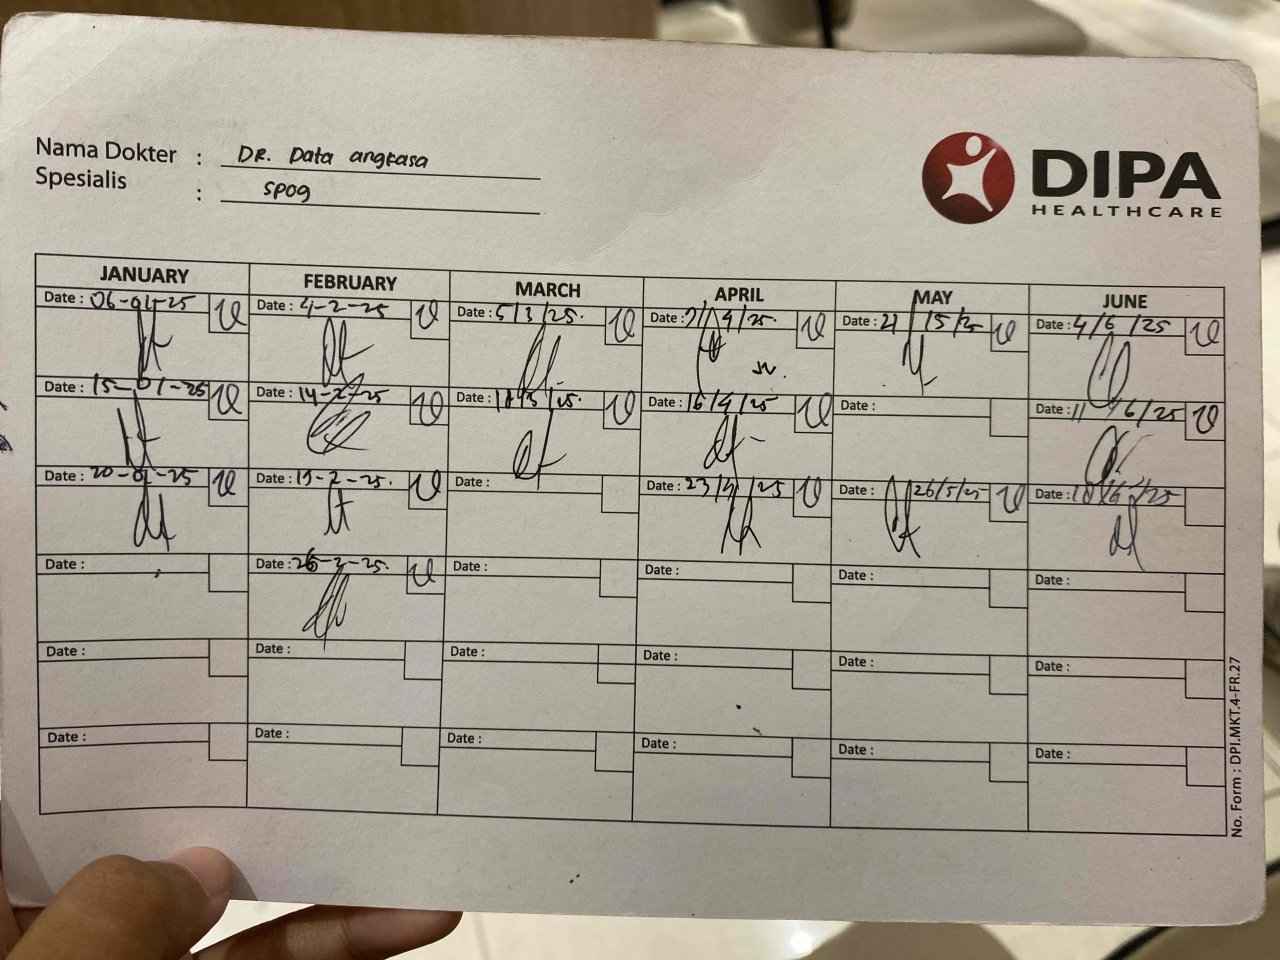 Nama Dokter : DR. Data angkasa
Spesialis : SPOg
DIPA
HEALTHCARE
JANUARY FEBRUARY MARCH APRIL MAY JUNE
Date : 06-01-25 Date : 4-2-25 Date : 5/3/25. Date : /4/25. Date : 21/5/25 Date : 4/6/25
Date : 15-01-25 Date : 14-2-25 Date : /3/25. Date : 16/4/25 Date : Date : 11/6/25
Date : 20-01-25 Date : 19-2-25. Date : Date : 23/4/25 Date : 26/5/25 Date : 18/6/25
Date : Date : 26-2-25. Date : Date : Date : Date :
Date : Date : Date : Date : Date : Date :
Date : Date : Date : Date : Date : Date :
No. Form : DPI.MKT.4-FR.27